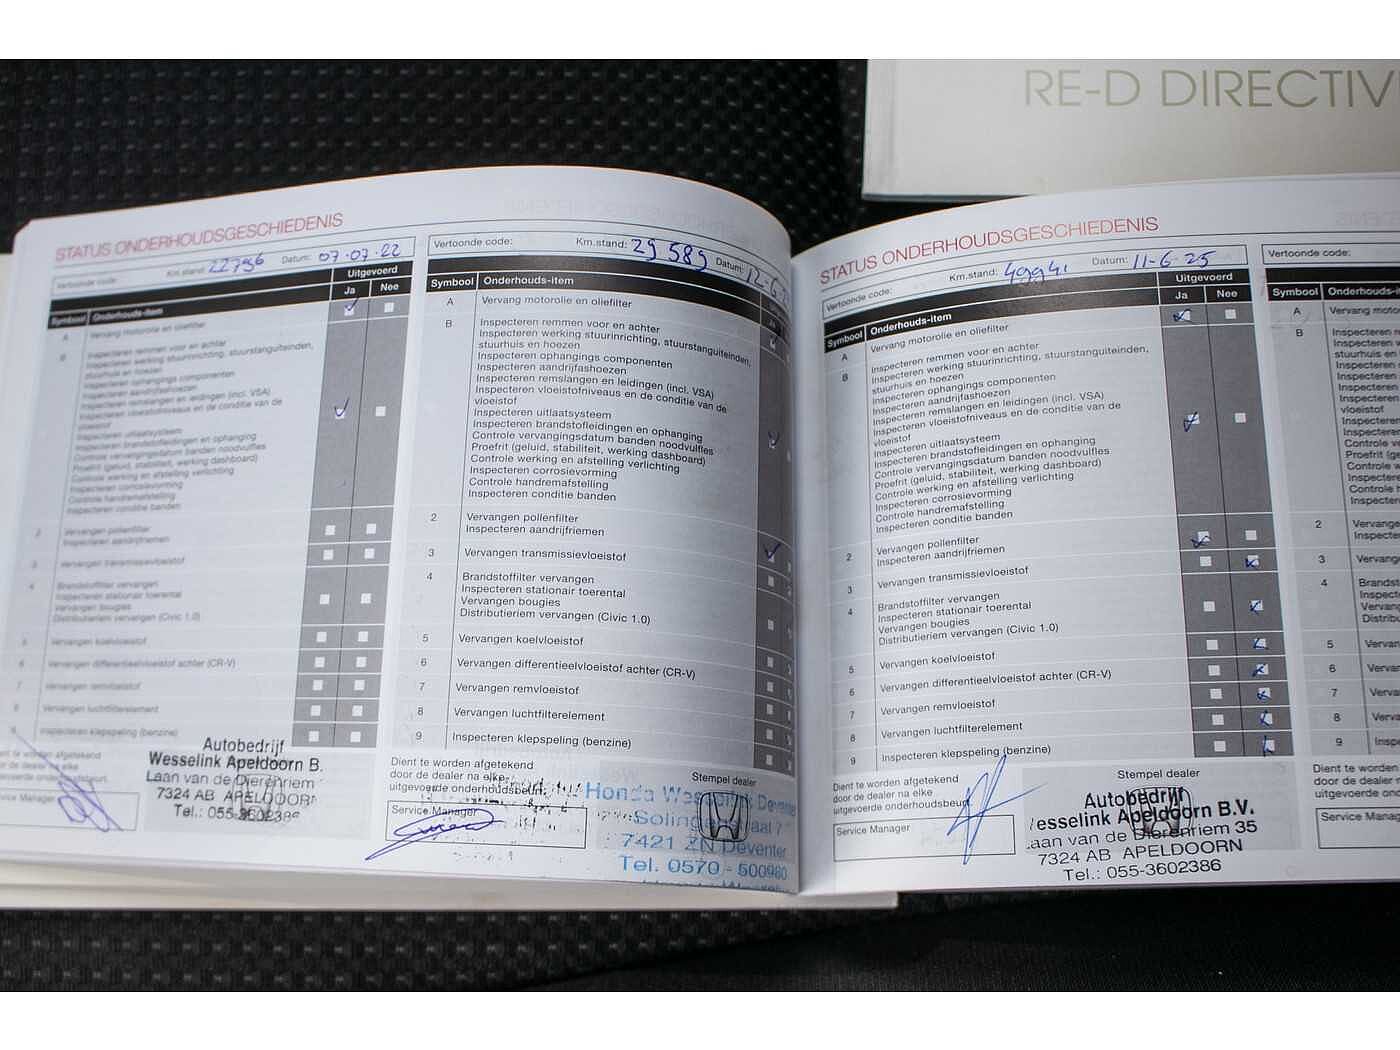 RE-D DIRECTIV
STATUS ONDERHOUDSGESCHIEDENIS
Vertoonde code:
Km.stand: 22796
Datum: 07-07-22
Uitgevoerd
Ja
Nee
Symbool
Onderhouds-item
A
Vervang motorolie en oliefilter
B
Inspecteren remmen voor en achter
Inspecteren werking stuurinrichting, stuurstanguiteinden,
stuurhuis en hoezen
Inspecteren ophangings componenten
Inspecteren aandrijfashoezen
Inspecteren remslangen en leidingen (incl. VSA)
Inspecteren vloeistofniveaus en de conditie van de
vloeistof
Inspecteren uitlaatsysteem
Inspecteren brandstofleidingen en ophanging
Controle vervangingsdatum banden noodvulfles
Proefrit (geluid, stabiliteit, werking dashboard)
Controle werking en afstelling verlichting
Inspecteren corrosievorming
Controle handremafstelling
Inspecteren conditie banden
2
Vervangen pollenfilter
Inspecteren aandrijfriemen
3
Vervangen transmissievloeistof
4
Brandstoffilter vervangen
Inspecteren stationair toerental
Vervangen bougies
Distributieriem vervangen (Civic 1.0)
5
Vervangen koelvloeistof
6
Vervangen differentieelvloeistof achter (CR-V)
7
Vervangen remvloeistof
8
Vervangen luchtfilterelement
9
Inspecteren klepspeling (benzine)
Dient te worden afgetekend
door de dealer na elke
uitgevoerde onderhoudsbeurt.
Service Manager
Autobedrijf
Wesselink Apeldoorn B.
Laan van de Dierenriem
7324 AB APELDOORN
Tel.: 055-3602386
Vertoonde code:
Km.stand: 29589
Datum: 12-6-2
Symbool
Onderhouds-item
A
Vervang motorolie en oliefilter
B
Inspecteren remmen voor en achter
Inspecteren werking stuurinrichting, stuurstanguiteinden,
stuurhuis en hoezen
Inspecteren ophangings componenten
Inspecteren aandrijfashoezen
Inspecteren remslangen en leidingen (incl. VSA)
Inspecteren vloeistofniveaus en de conditie van de
vloeistof
Inspecteren uitlaatsysteem
Inspecteren brandstofleidingen en ophanging
Controle vervangingsdatum banden noodvulfles
Proefrit (geluid, stabiliteit, werking dashboard)
Controle werking en afstelling verlichting
Inspecteren corrosievorming
Controle handremafstelling
Inspecteren conditie banden
2
Vervangen pollenfilter
Inspecteren aandrijfriemen
3
Vervangen transmissievloeistof
4
Brandstoffilter vervangen
Inspecteren stationair toerental
Vervangen bougies
Distributieriem vervangen (Civic 1.0)
5
Vervangen koelvloeistof
6
Vervangen differentieelvloeistof achter (CR-V)
7
Vervangen remvloeistof
8
Vervangen luchtfilterelement
9
Inspecteren klepspeling (benzine)
Dient te worden afgetekend
door de dealer na elke
uitgevoerde onderhoudsbeurt.
Service Manager
Stempel dealer
Honda Wesselink Deventer
7421 ZN Deventer
Tel. 0570 - 500980
STATUS ONDERHOUDSGESCHIEDENIS
Vertoonde code:
Km.stand: 49941
Datum: 11-6-25
Uitgevoerd
Ja
Nee
Symbool
Onderhouds-item
A
Vervang motorolie en oliefilter
B
Inspecteren remmen voor en achter
Inspecteren werking stuurinrichting, stuurstanguiteinden,
stuurhuis en hoezen
Inspecteren ophangings componenten
Inspecteren aandrijfashoezen
Inspecteren remslangen en leidingen (incl. VSA)
Inspecteren vloeistofniveaus en de conditie van de
vloeistof
Inspecteren uitlaatsysteem
Inspecteren brandstofleidingen en ophanging
Controle vervangingsdatum banden noodvulfles
Proefrit (geluid, stabiliteit, werking dashboard)
Controle werking en afstelling verlichting
Inspecteren corrosievorming
Controle handremafstelling
Inspecteren conditie banden
2
Vervangen pollenfilter
Inspecteren aandrijfriemen
3
Vervangen transmissievloeistof
4
Brandstoffilter vervangen
Inspecteren stationair toerental
Vervangen bougies
Distributieriem vervangen (Civic 1.0)
5
Vervangen koelvloeistof
6
Vervangen differentieelvloeistof achter (CR-V)
7
Vervangen remvloeistof
8
Vervangen luchtfilterelement
9
Inspecteren klepspeling (benzine)
Dient te worden afgetekend
door de dealer na elke
uitgevoerde onderhoudsbeurt
Service Manager
Stempel dealer
Autobedrijf
esselink Apeldoorn B.V.
aan van de Dierenriem 35
7324 AB APELDOORN
Tel.: 055-3602386
Vertoonde code:
Symbool
Onderhouds-i
A
Vervang moto
B
Inspecteren
Inspecteren
stuurhuis en
Inspecteren
Inspecteren
Inspecteren
Inspecteren
vloeistof
Inspecteren
Inspecteren
Controle v
Proefrit (ge
Controle w
Inspecteren
Controle h
Inspecteren
2
Vervangen
Inspecteren
3
Vervangen
4
Brandstof
Inspecter
Vervange
Distribut
5
Vervan
6
Vervan
7
Vervan
8
Vervan
9
Inspec
Dient te worden
door de dealer n
uitgevoerde ond
Service Manage